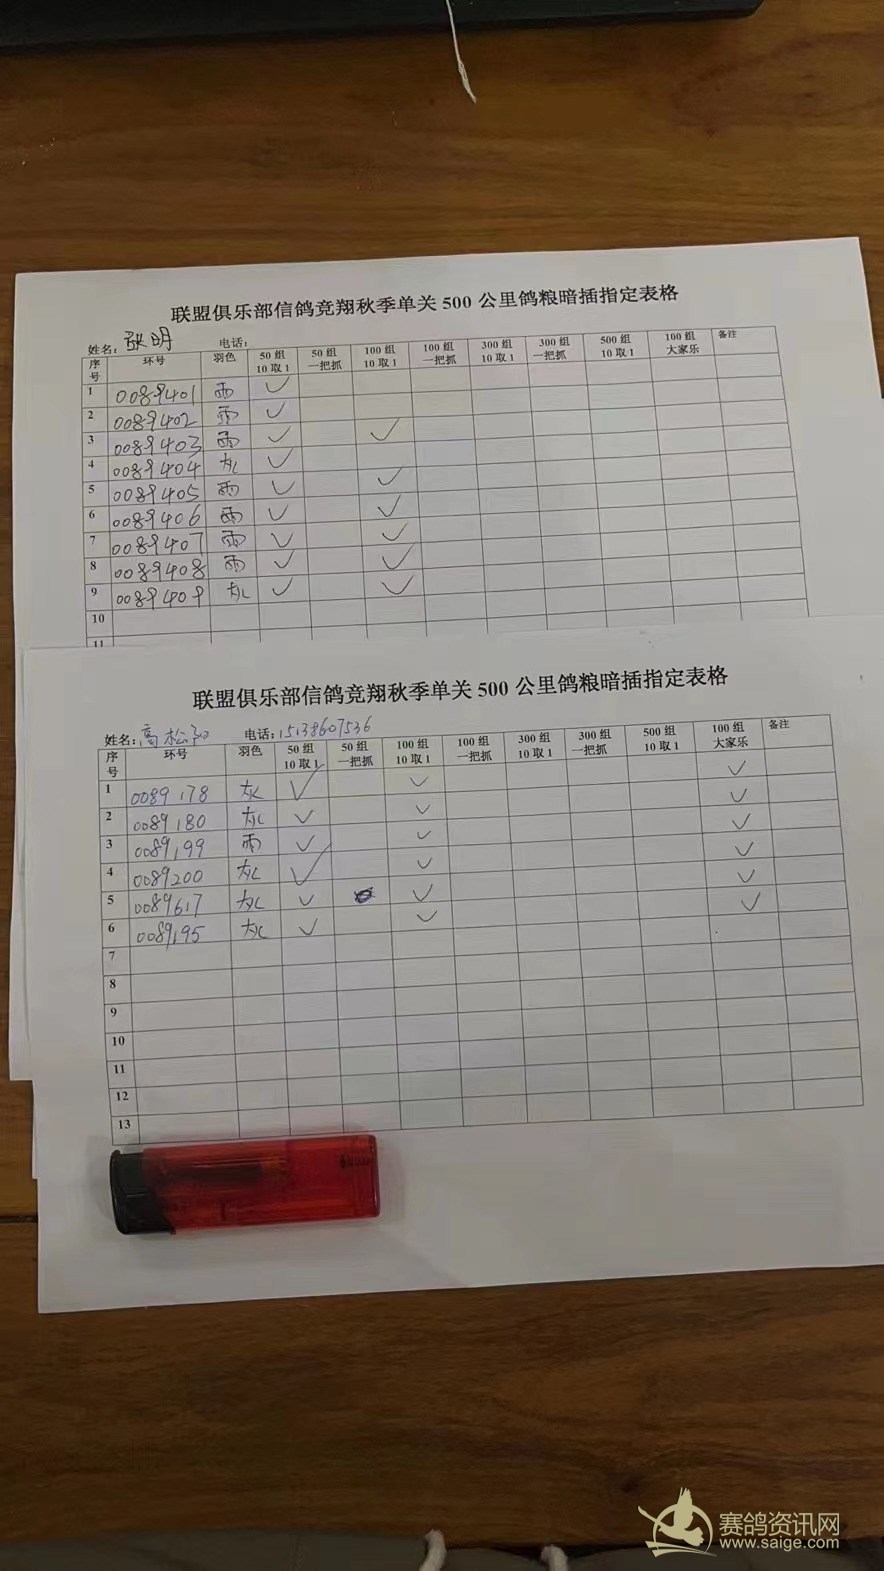 联盟俱乐部信鸽竞翔秋季单关 500 公里鸽粮暗插指定表格
姓名: 张明 电话:
序号 环号 羽色 50 组 10 取 1 50 组 一把抓 100 组 10 取 1 100 组 一把抓 300 组 10 取 1 300 组 一把抓 500 组 10 取 1 100 组 大家乐 备注
1 0089401 雨 ✓
2 0089402 雨 ✓
3 0089403 雨 ✓ ✓
4 0089404 灰 ✓
5 0089405 雨 ✓ ✓
6 0089406 雨 ✓ ✓
7 0089407 雨 ✓ ✓
8 0089408 雨 ✓ ✓
9 0089409 灰 ✓ ✓
10
11
联盟俱乐部信鸽竞翔秋季单关 500 公里鸽粮暗插指定表格
姓名: 高松 电话: 15138607536
序号 环号 羽色 50 组 10 取 1 50 组 一把抓 100 组 10 取 1 100 组 一把抓 300 组 10 取 1 300 组 一把抓 500 组 10 取 1 100 组 大家乐 备注
1 0089178 灰 ✓ ✓ ✓
2 0089180 灰 ✓ ✓ ✓
3 0089199 雨 ✓ ✓ ✓
4 0089200 灰 ✓ ✓ ✓
5 0089617 灰 ✓ ✓ ✓
6 0089195 灰 ✓ ✓ ✓
7
8
9
10
11
12
13
赛鸽资讯网
www.saige.com